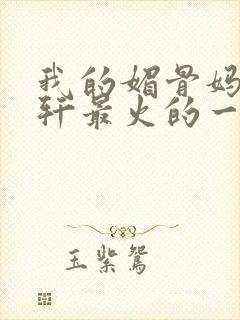 我的媚骨妈
轩最火的一
玉紫鸳